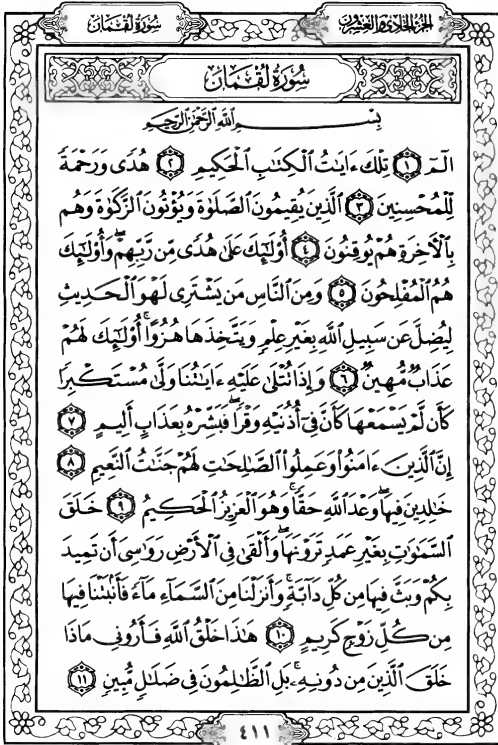 الجُزْءُ الحَادِي وَالعِشْرُونَ سُورَةُ لُقْمَانَ
سُورَةُ لُقْمَانَ
بِسْمِ ٱللَّهِ ٱلرَّحْمَٰنِ ٱلرَّحِيمِ
الٓمٓ ١ تِلْكَ ءَايَٰتُ ٱلْكِتَٰبِ ٱلْحَكِيمِ ٢ هُدًى وَرَحْمَةً
لِّلْمُحْسِنِينَ ٣ ٱلَّذِينَ يُقِيمُونَ ٱلصَّلَوٰةَ وَيُؤْتُونَ ٱلزَّكَوٰةَ وَهُم
بِٱلْأَخِرَةِ هُمْ يُوقِنُونَ ٤ أُوْلَٰٓئِكَ عَلَىٰ هُدًى مِّن رَّبِّهِمْ ۖ وَأُوْلَٰٓئِكَ
هُمُ ٱلْمُفْلِحُونَ ٥ وَمِنَ ٱلنَّاسِ مَن يَشْتَرِى لَهْوَ ٱلْحَدِيثِ
لِيُضِلَّ عَن سَبِيلِ ٱللَّهِ بِغَيْرِ عِلْمٍ وَيَتَّخِذَهَا هُزُوًا ۚ أُوْلَٰٓئِكَ لَهُمْ
عَذَابٌ مُّهِينٌ ٦ وَإِذَا تُتْلَىٰ عَلَيْهِ ءَايَٰتُنَا وَلَّىٰ مُسْتَكْبِرًا
كَأَن لَّمْ يَسْمَعْهَا كَأَنَّ فِىٓ أُذُنَيْهِ وَقْرًا ۖ فَبَشِّرْهُ بِعَذَابٍ أَلِيمٍ ٧
إِنَّ ٱلَّذِينَ ءَامَنُوا۟ وَعَمِلُوا۟ ٱلصَّٰلِحَٰتِ لَهُمْ جَنَّٰتُ ٱلنَّعِيمِ ٨
خَٰلِدِينَ فِيهَا ۖ وَعْدَ ٱللَّهِ حَقًّا ۚ وَهُوَ ٱلْعَزِيزُ ٱلْحَكِيمُ ٩ خَلَقَ
ٱلسَّمَٰوَٰتِ بِغَيْرِ عَمَدٍ تَرَوْنَهَا ۖ وَأَلْقَىٰ فِى ٱلْأَرْضِ رَوَٰسِىَ أَن تَمِيدَ
بِكُمْ وَبَثَّ فِيهَا مِن كُلِّ دَآبَّةٍ ۚ وَأَنزَلْنَا مِنَ ٱلسَّمَآءِ مَآءً فَأَنۢبَتْنَا فِيهَا
مِن كُلِّ زَوْجٍ كَرِيمٍ ١٠ هَٰذَا خَلْقُ ٱللَّهِ فَأَرُونِى مَاذَا
خَلَقَ ٱلَّذِينَ مِن دُونِهِۦ ۚ بَلِ ٱلظَّٰلِمُونَ فِى ضَلَٰلٍ مُّبِينٍ ١١
٤١١